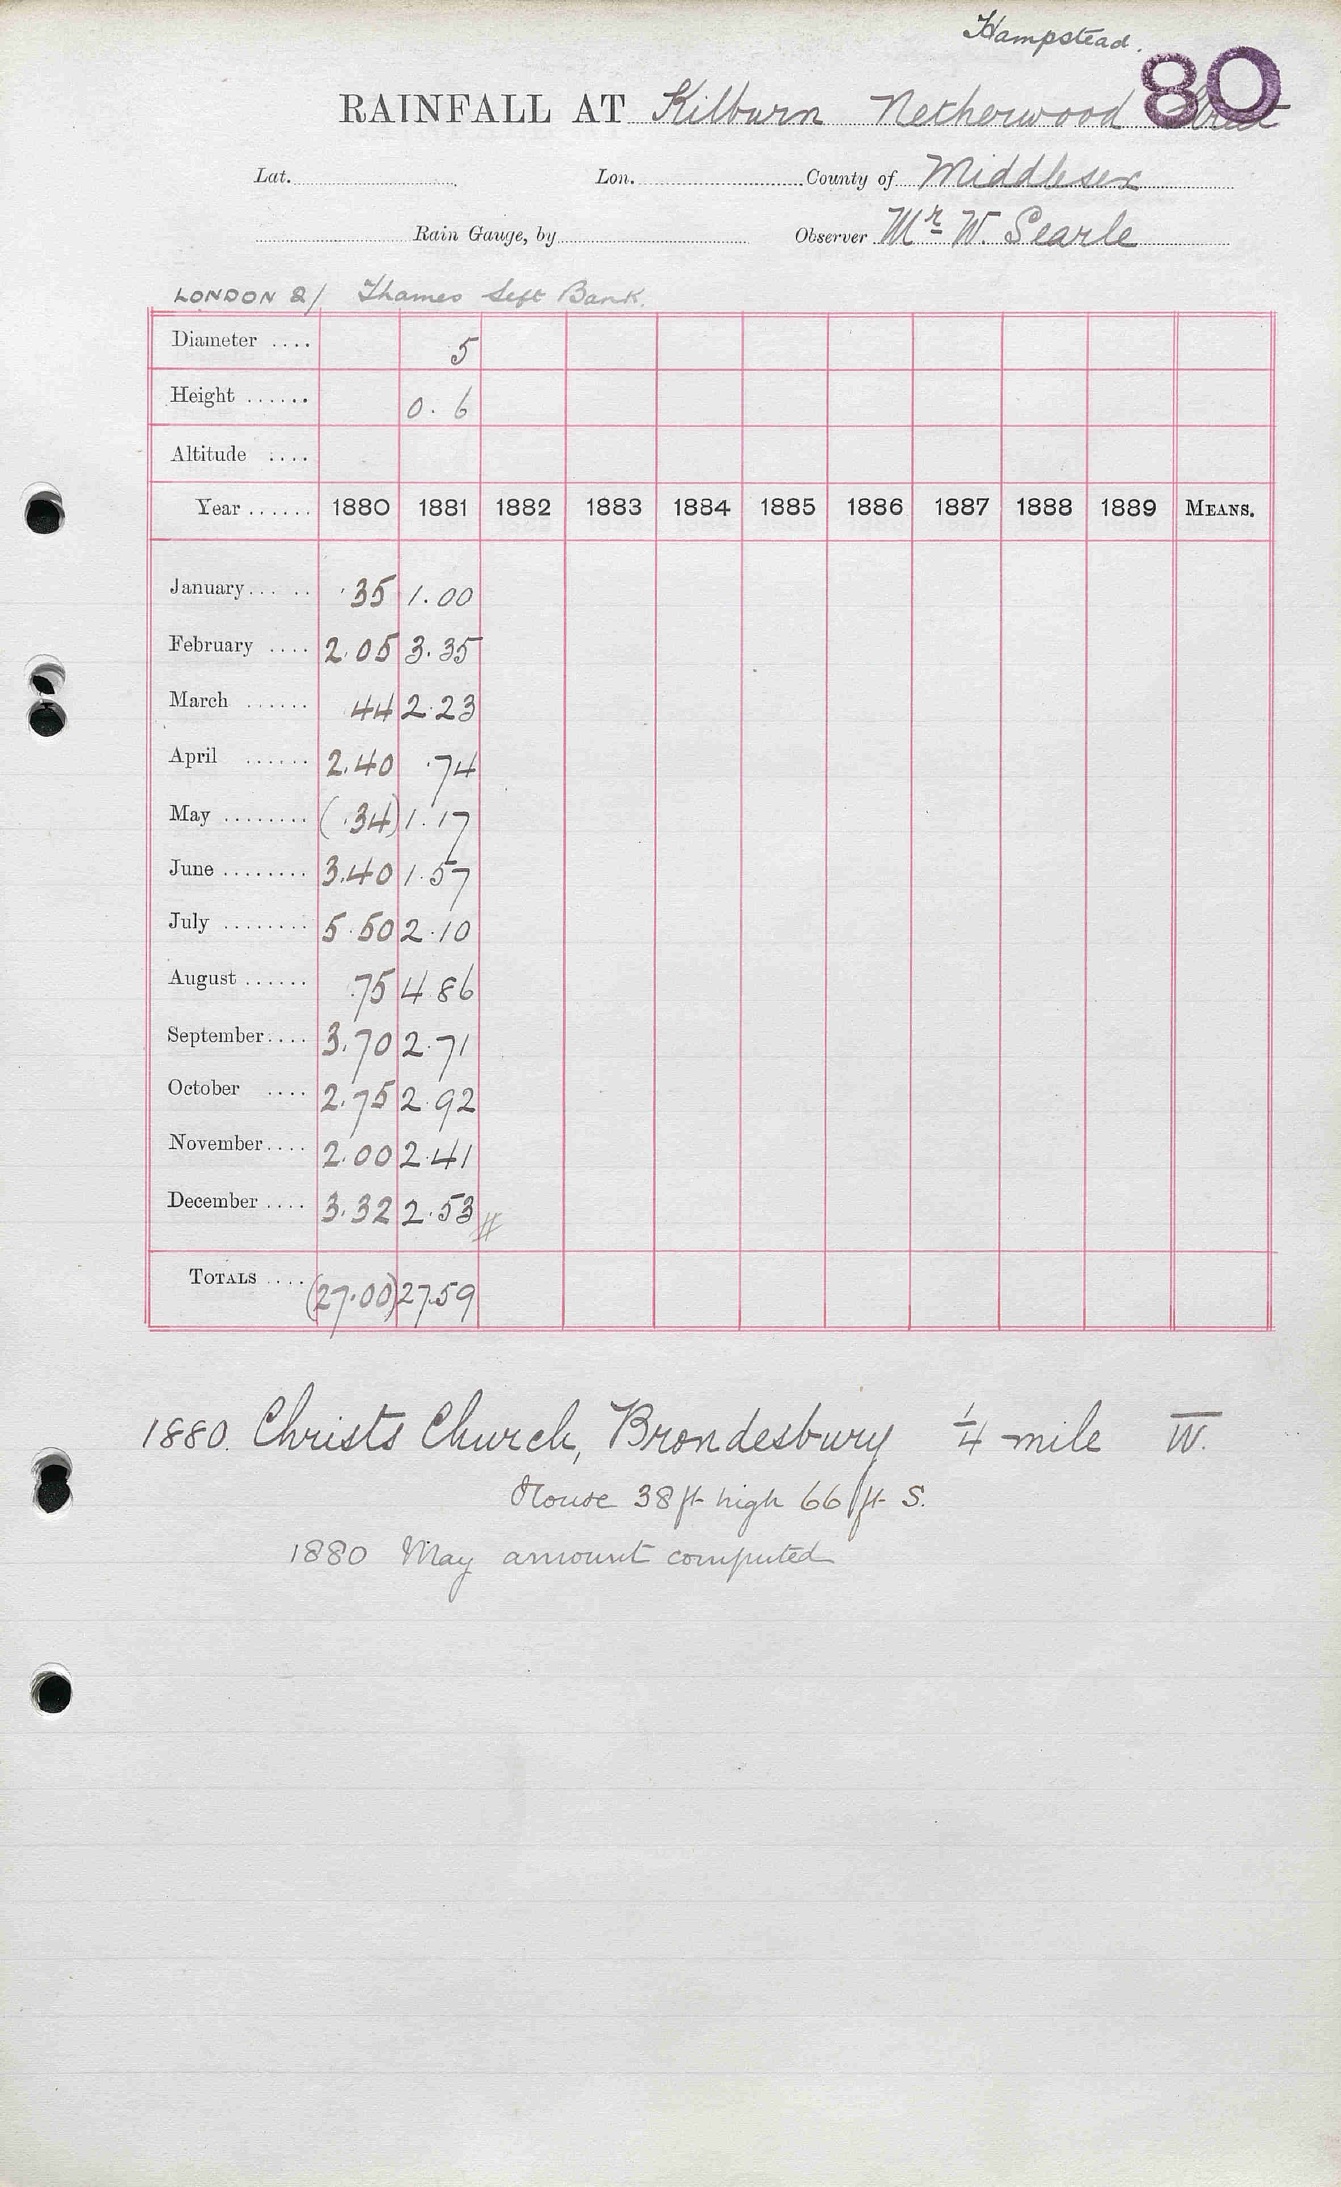 Hampstead.
80
RAINFALL AT Kilburn Netherwood Street
Lat. Lon. County of Middlesex
Rain Gauge, by Observer Mr W. Searle
LONDON 2/ Thames Left Bank.
Diameter .... 5
Height ...... 0.6
Altitude ....
Year ...... 1880 1881 1882 1883 1884 1885 1886 1887 1888 1889 MEANS.
January ..... .35 1.00
February .... 2.05 3.35
March ...... 44 2.23
April ...... 2.40 .74
May ........ (.34) 1.17
June ........ 3.40 1.57
July ........ 5.50 2.10
August ...... .75 4.86
September .... 3.70 2.71
October .... 2.75 2.92
November .... 2.00 2.41
December .... 3.32 2.53
TOTALS .... (27.00) 27.59
1880. Christs Church, Brondesbury 1/4 mile W.
House 38 ft high 66 ft S.
1880 May amount computed